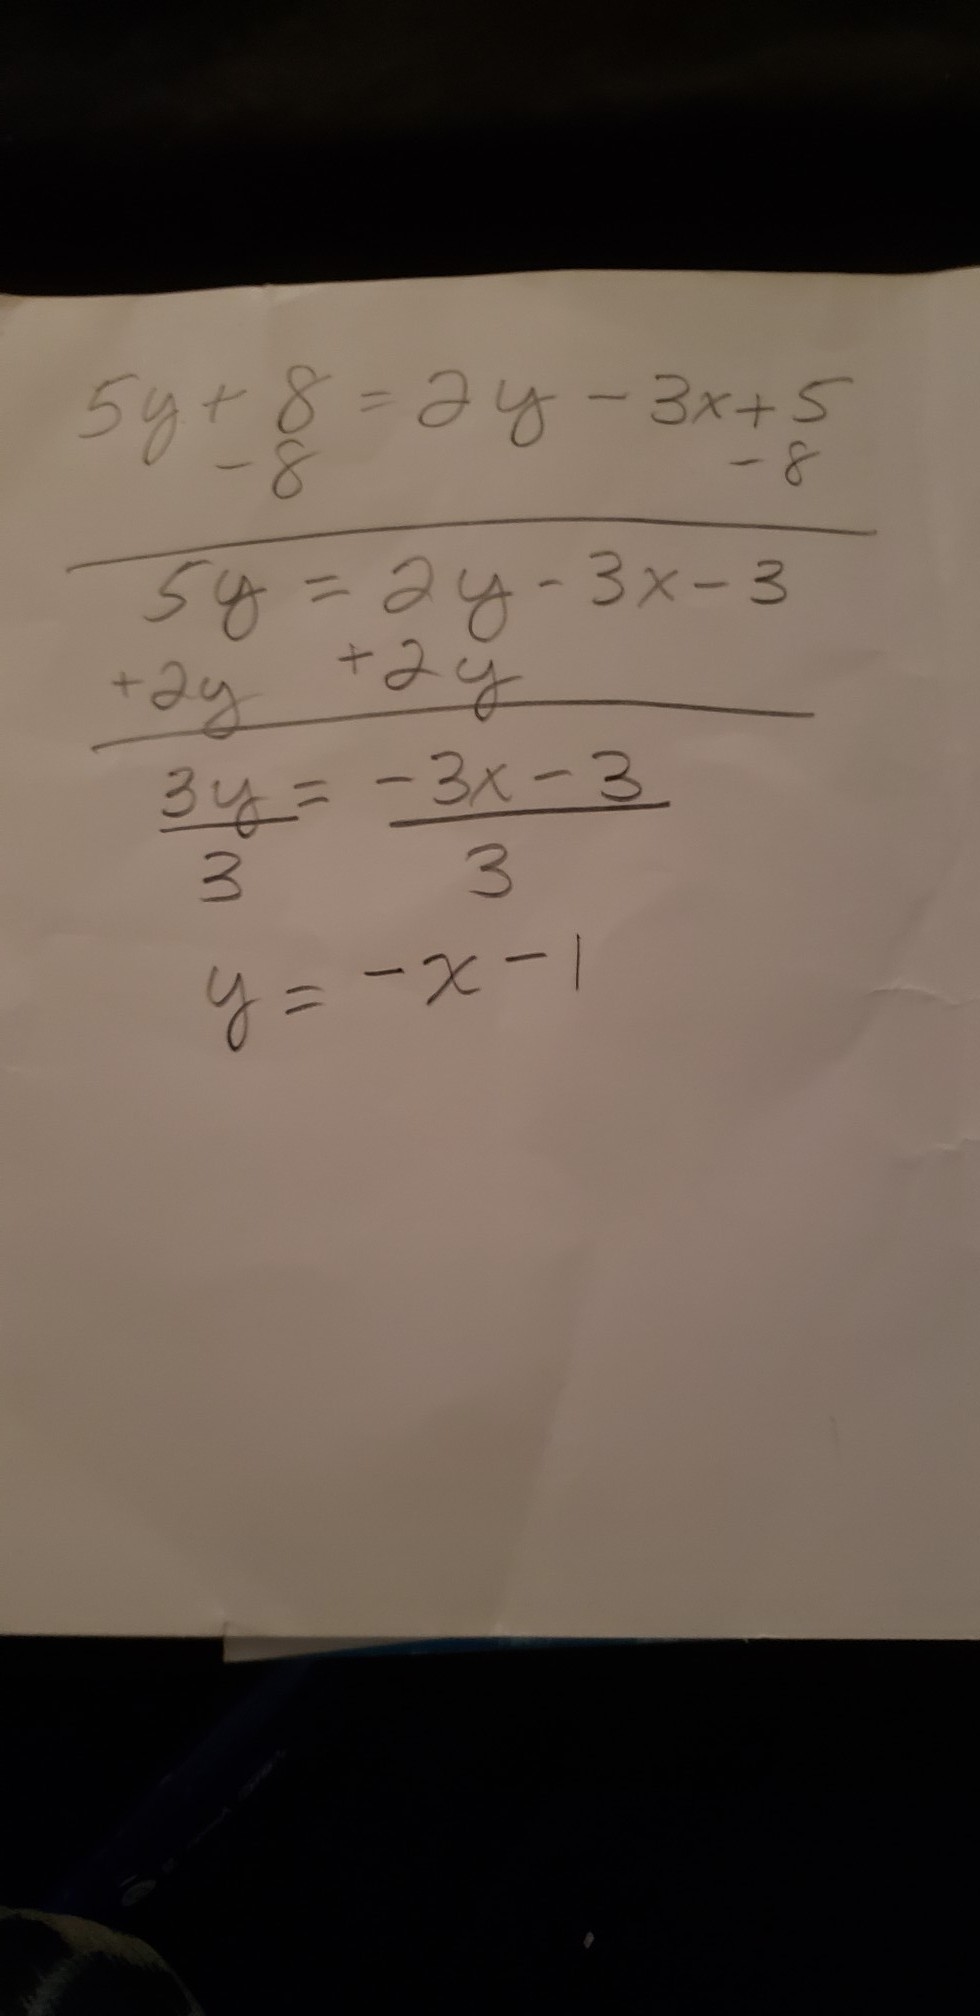 5y + 8 = 2y - 3x + 5
- 8 - 8
5y = 2y - 3x - 3
+2y +2y
3y = -3x - 3
3 3
y = -x - 1